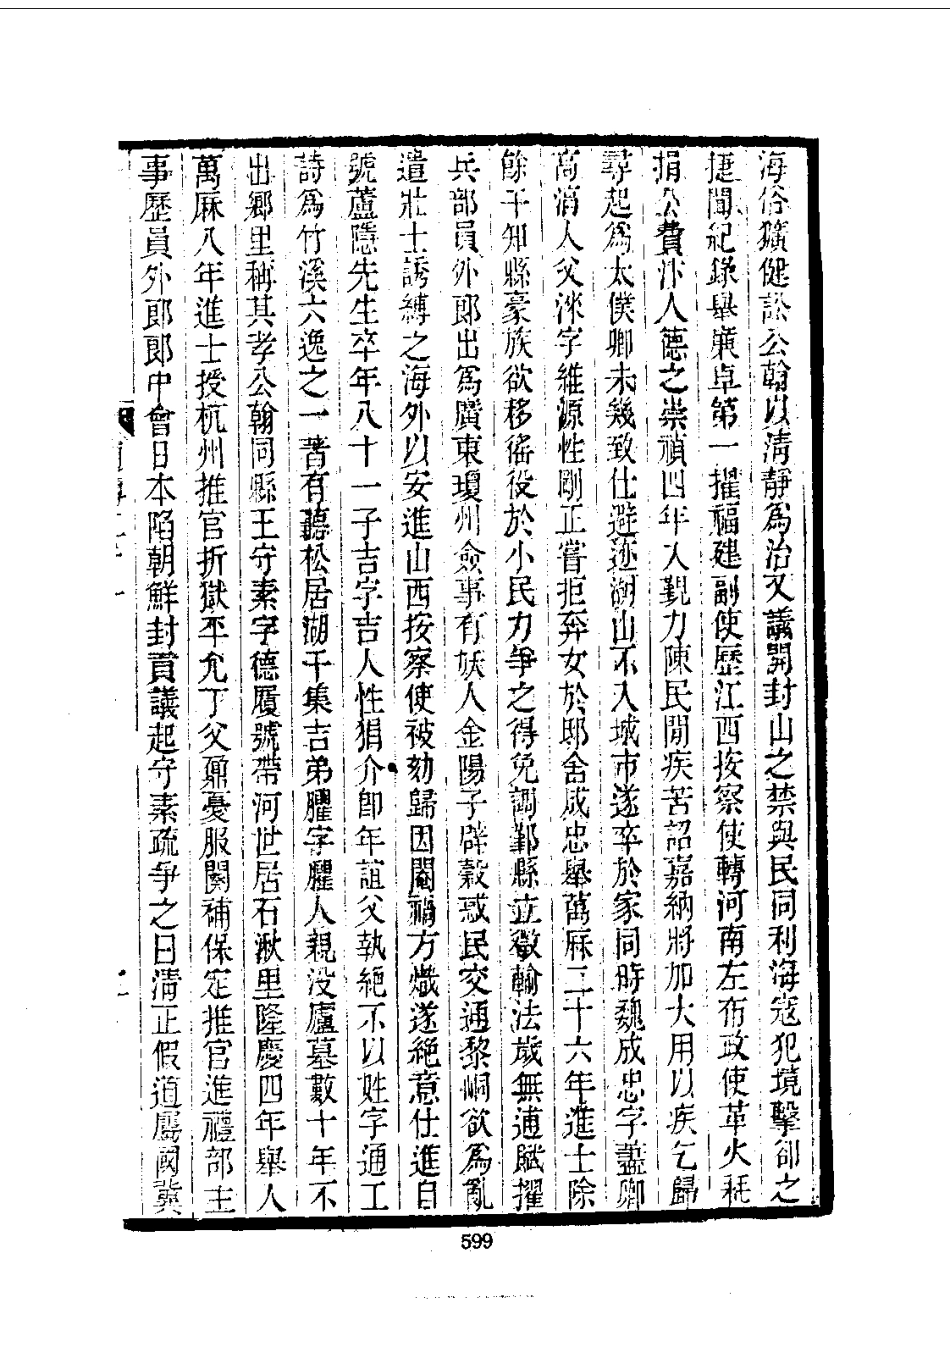 海俗獷健訟公翰以淸靜爲治又議開封山之禁與民同利海寇犯境擊卻之
捷聞紀錄舉廉卓第一擢福建副使歷江西按察使轉河南左布政使革火耗
捐公費汴人德之崇禎四年入覲力陳民閒疾苦詔嘉納將加大用以疾乞歸
尋起爲太僕卿未幾致仕避迹湖山不入城市遂卒於家同時魏成忠字藎卿
高淯人父洣字維源性剛正嘗拒奔女於邸舍成忠舉萬厤二十六年進士除
餘干知縣豪族欲移徭役於小民力爭之得免調鄞縣立徵輸法歲無逋賦擢
兵部員外郞出爲廣東瓊州僉事有妖人金陽子辟穀惑民交通黎峒欲爲亂
遣壯士誘縛之海外以安進山西按察使被劾歸因閹禍方熾遂絕意仕進自
號蘆隱先生卒年八十一子吉字吉人性狷介卽年誼父執絕不以姓字通工
詩爲竹溪六逸之一著有聽松居湖千集吉弟臞字臞人親没廬墓數十年不
出鄉里稱其孝公翰同縣王守素字德履號帶河世居石湫里隆慶四年舉人
萬厤八年進士授杭州推官折獄平允丁父鼐憂服闋補保定推官進禮部主
事歷員外郞郞中會日本陷朝鮮封貢議起守素疏爭之曰淸正假道屬國冀
599